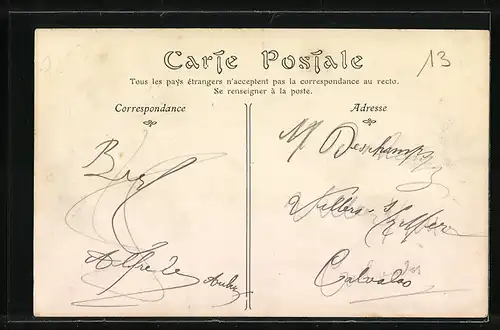 Carte Postale
13
Tous les pays étrangers n'acceptent pas la correspondance au recto.
Se renseigner à la poste.
Correspondance
Adresse
M Deschamps
Villers-s
Calvados
Alfred